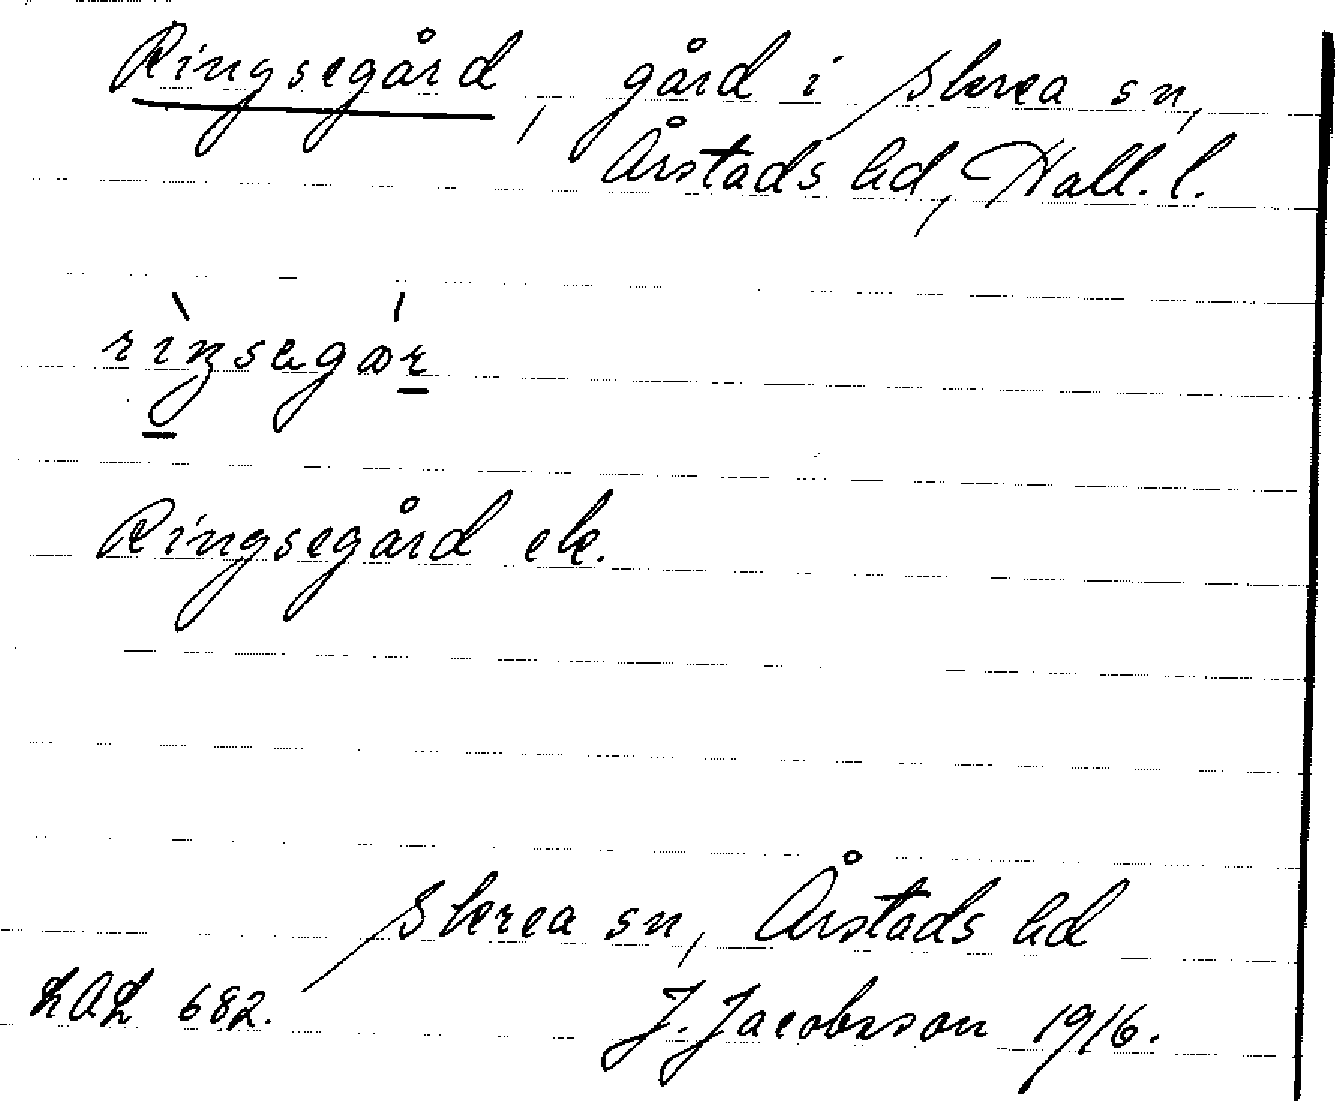 Ringsegård, gård i Skrea sn,
Årstads hd, Hall. l.
rìŋsəgɷ́r
Ringsegård ek.
Skrea sn, Årstads hd
LAL 682.
J. Jacobsson 1916.